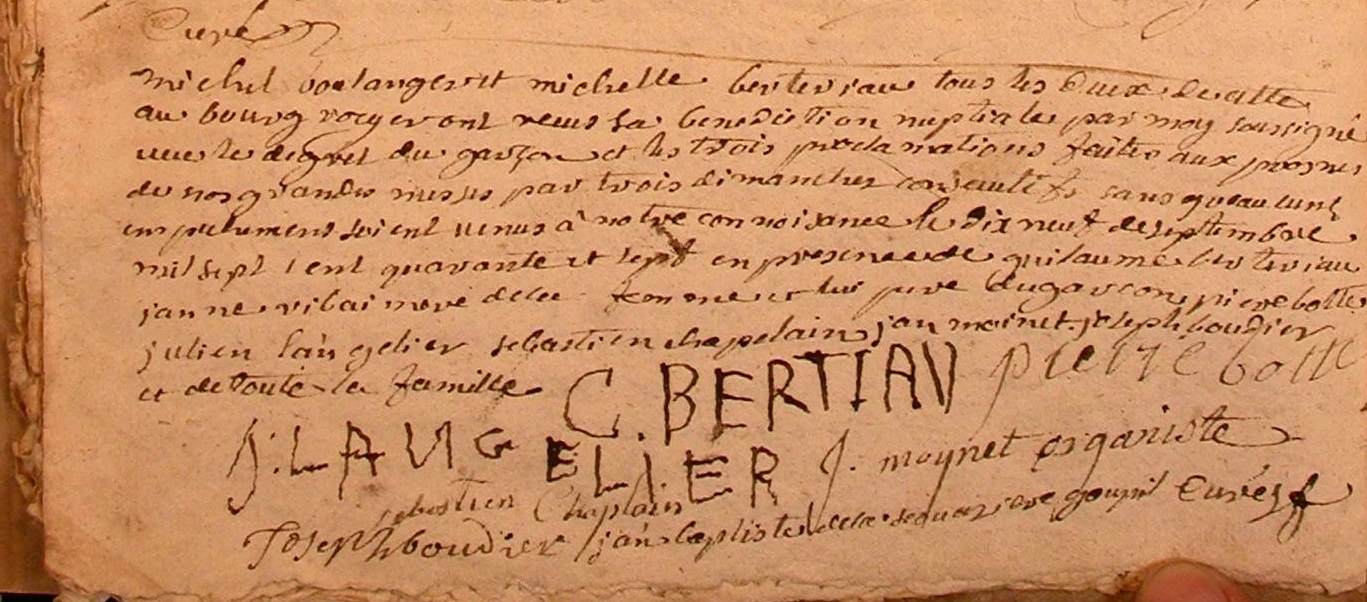 Curé
michel boulanger et michelle berteriau tous les deux de cette
au bourg rocger ont receus la benediction nuptiale par moy soussigné
veue le degret du garçon et les trois proclamations faites aux prosnes
de nos grandes messes par trois dimanches consecutifs sans qu aucuns
empechemens soient venus à notre connoissance le dix neuf de septembre
mil sept cent quarante et sept en presence de guilaume berteriau
janne vilai mere de la femme et lui pere du garcon, pierre botte
julien langelier sebastien chapelain jan moinet joseph boudier
et de toute la famille C. BERTIAU pierre botte
J. LAUGELIER J. moynet organiste
sebastien Chaplain
Joseph boudier jan baptiste de la goupil Curé